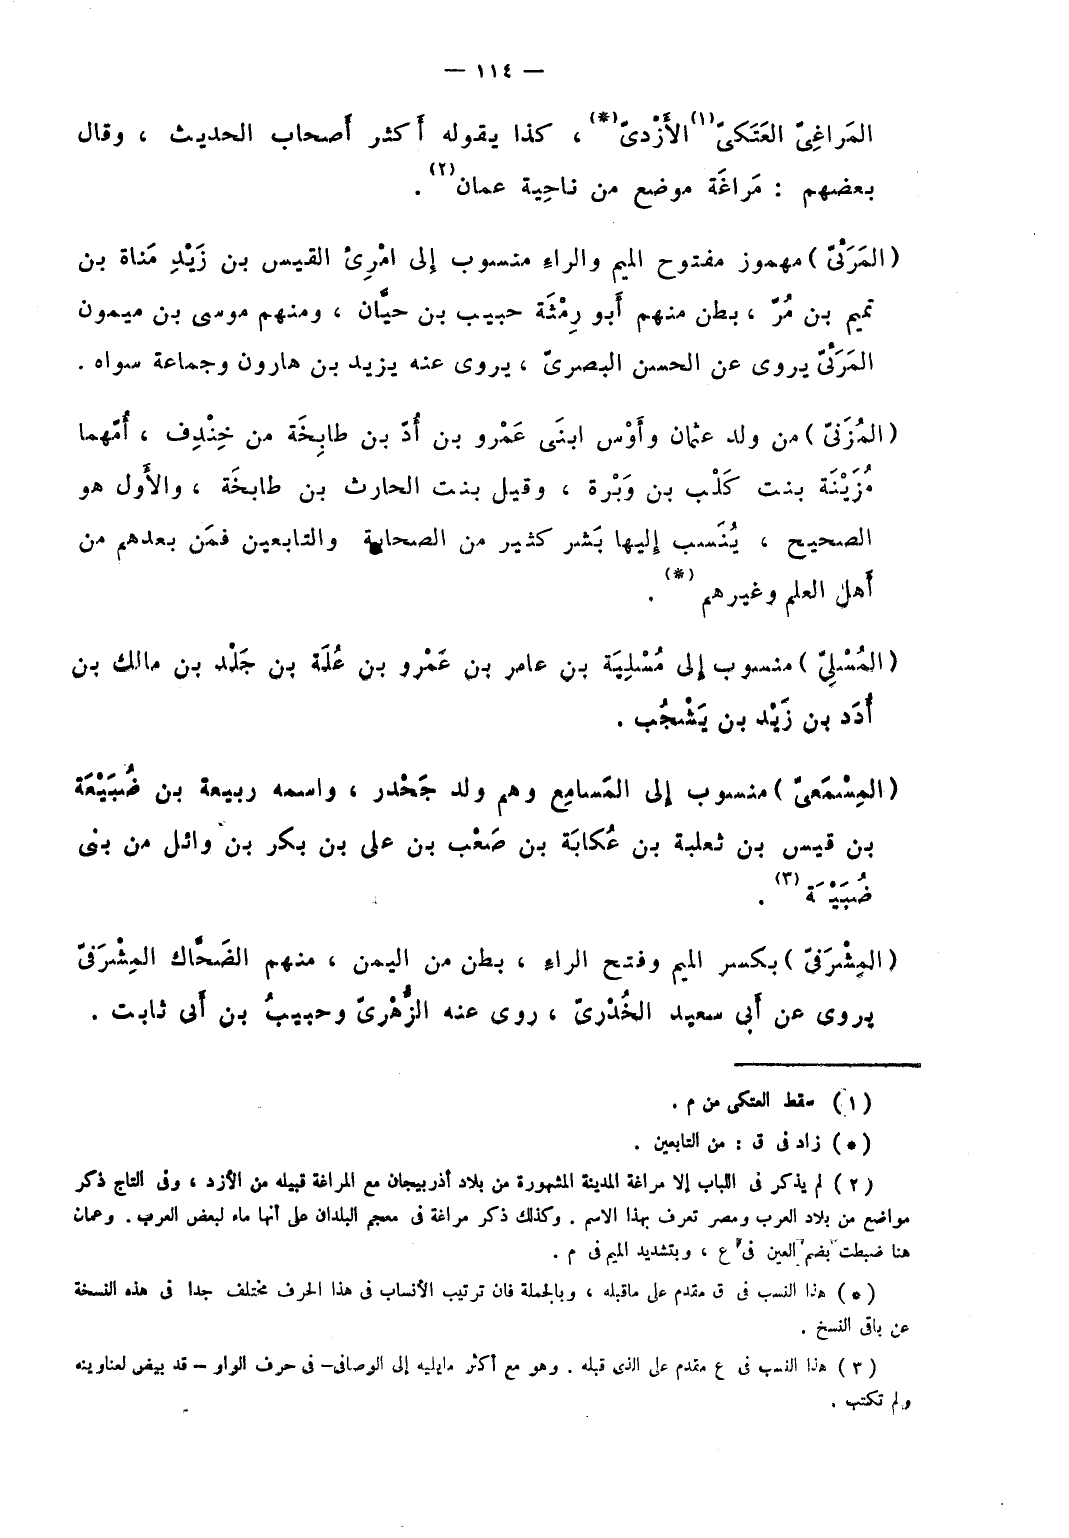 — ١١٤ —
المَراغِىّ العَتَكىّ(١) الأَزْدىّ(*) ، كذا يقوله أَكثر أَصحاب الحديث ، وقال
بعضهم : مَراغَة موضع من ناحِية عمان(٢) .
( المَرَئىّ ) مهموز مفتوح الميم والراءِ منسوب إلى امْرِئ القيس بن زَيْدِ مَناة بن
تميم بن مُرّ ، بطن منهم أَبو رِمْثَة حبيب بن حيَّان ، ومنهم موسى بن ميمون
المَرَئىّ يروى عن الحسن البصرىّ ، يروى عنه يزيد بن هارون وجماعة سواه .
( المُزَنىّ ) من ولد عثمان وأَوْس ابنَى عَمْرو بن أُدّ بن طابِخَة من خِنْدِف ، أُمّهما
مُزَيْنَة بنت كَلْب بن وَبْرة ، وقيل بنت الحارث بن طابخَة ، والأَول هو
الصحيح ، يُنَسب إليها بَشر كثير من الصحابة والتابعين فمَن بعدهم من
أَهل العلم وغيرهم (*) .
( المُسْلِىّ ) منسوب إلى مُسْلِيَة بن عامر بن عَمْرو بن عُلَة بن جَلْد بن مالك بن
أُدَد بن زَيْد بن يَشْجُب .
( المِسْمَعىّ ) منسوب إلى المَسامِع وهم ولد جَحْدر ، واسمه ربيعة بن ضُبَيْعَة
بن قيس بن ثعلبة بن عُكابَة بن صَعْب بن على بن بكر بن وائل من بنى
ضُبَيْعَة (٣) .
( المِشْرَفىّ ) بكسر الميم وفتح الراءِ ، بطن من اليمن ، منهم الضَحَّاك المِشْرَفىّ
يروى عن أَبى سعيد الخُدْرىّ ، روى عنه الزُّهْرىّ وحبيبُ بن أَبى ثابت .
(١) سقط العتكى من م .
(*) زاد فى ق : من التابعين .
(٢) لم يذكر فى اللباب إلا مراغة المدينة المشهورة من بلاد أذربيجان مع المراغة قبيله من الأزد ، وفى التاج ذكر
مواضع من بلاد العرب ومصر تعرف بهذا الاسم . وكذلك ذكر مراغة فى معجم البلدان على أنها ماء لبعض العرب . وعمان
هنا ضبطت بضم العين فى ع ، وبتشديد الميم فى م .
(*) هذا النسب فى ق مقدم على ماقبله ، وبالجملة فان ترتيب الأنساب فى هذا الحرف مختلف جدا فى هذه النسخة
عن باقى النسخ .
(٣) هذا النسب فى ع مقدم على الذى قبله . وهو مع أكثر مايليه إلى الوصافى– فى حرف الواو – قد بيض لعناوينه
ولم تكتب .